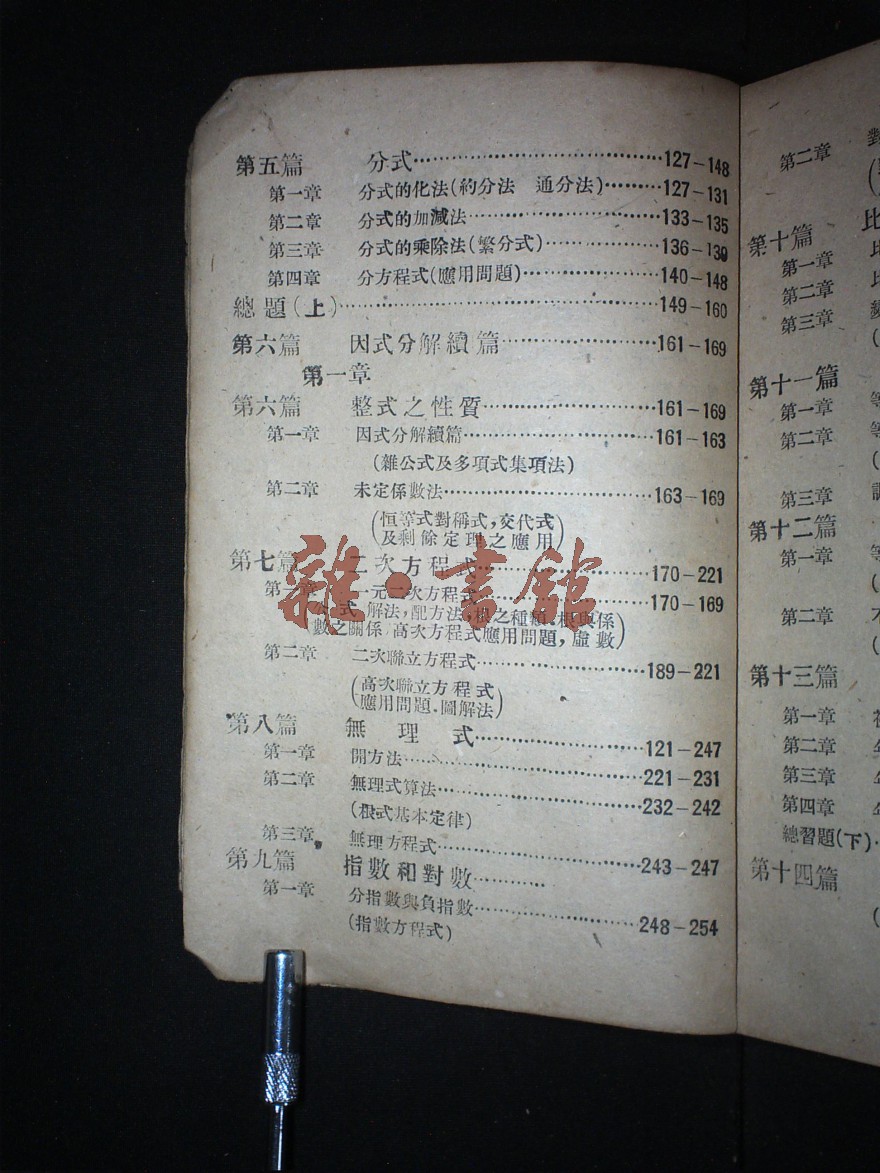 第五篇 分式……127-148
第一章 分式的化法(約分法 通分法)……127-131
第二章 分式的加減法……133-135
第三章 分式的乘除法(繁分式)……136-139
第四章 分方程式(應用問題)……140-148
總題(上)……149-160
第六篇 因式分解續篇……161-169
第一章
第六篇 整式之性質……161-169
第一章 因式分解續篇……161-163
(雜公式及多項式集項法)
第二章 未定係數法……163-169
(恒等式對稱式,交代式
及剩餘定理之應用)
第七篇 二次方程式……170-221
第一章 一元二次方程式……170-169
(公式 解法,配方法,根之種類 根與係
數之關係 高次方程式應用問題,虛數)
第二章 二次聯立方程式……189-221
(高次聯立方程式
應用問題.圖解法)
第八篇 無理式……121-247
第一章 開方法……221-231
第二章 無理式算法……232-242
(根式基本定律)
第三章 無理方程式……243-247
第九篇 指數和對數……
第一章 分指數與負指數……248-254
(指數方程式)
雜·書館
第二章
第十篇 比
第一章 比
第二章 比
第三章
第十一篇
第一章 等
第二章 等
第三章
第十二篇
第一章
第二章 不
第十三篇
第一章
第二章
第三章
第四章
總習題(下)
第十四篇